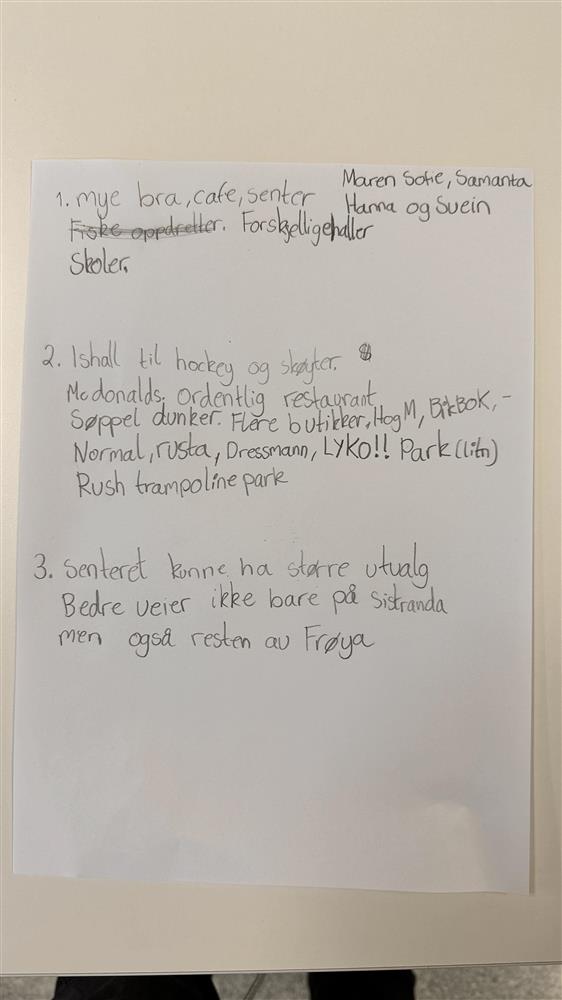 Maren Sofie, Samanta
Hanna og Svein
1. mye bra, cafe, senter
Fiske oppdretter. Forskjelligehaller
Skoler.
2. Ishall til hockey og skøyter.
Mc donalds. Ordentlig restaurant
Søppel dunker. Flere butikker, HogM, BikBOK, -
Normal, rusta, Dressmann, LYKO!! Park (litn)
Rush trampoline park
3. Senteret kunne ha større utvalg
Bedre veier ikke bare på Sistranda
men også resten av Frøya